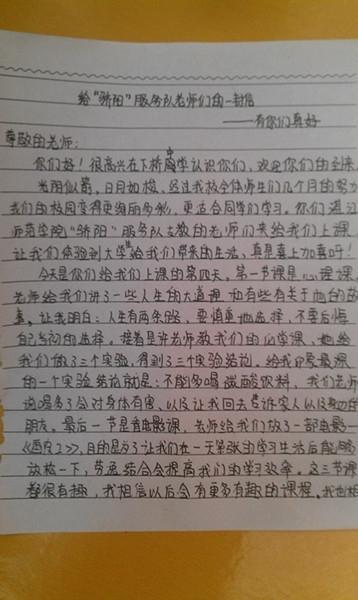 给“骄阳”服务队老师们的一封信
——有你们真好
尊敬的老师:
你们好!很高兴在下桥中学认识你们,欢迎你们的到来
光阴似箭,日月如梭,经过我校全体师生们几个月的努力
我们的校园变得更绚丽多彩,更适合同学们学习。你们湛江
师范学院“骄阳”服务队支教的老师们来给我们上课
让我们体验到大学给我们带来的生活,真是喜上加喜呀!
今天是你们给我们上课的第四天,第一节课是心理课,
老师给我们讲了一些人生的大道理和有些有关于他的故
事。让我明白:人生有两条路,要慎重地选择,不要后悔
自己当初的选择。接着是许老师教我们的化学课,她给
我们做了三个实验,得到了三个实验结论,给我印象最深
的一个实验结论就是:不能多喝碳酸饮料,我们老师
说喝多了会对身体有害,以及让我回去告诉家人以及身边的
朋友。最后一节是看电影课,老师给我们放了一部电影—
目的是为了让我们在一天紧张的学习生活后能够
放松一下,劳逸结合会提高我们的学习效率。这三节课
都很有趣,我相信以后会有更多有趣的课程。我也相